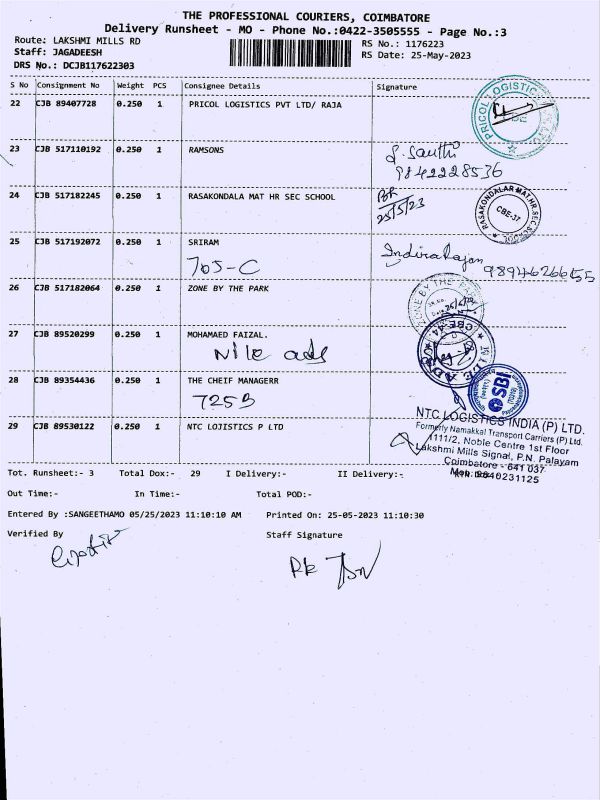 THE PROFESSIONAL COURIERS, COIMBATORE
Delivery Runsheet - MO - Phone No.:0422-3505555 - Page No.:3
Route: LAKSHMI MILLS RD
RS No.: 1176223
Staff: JAGADEESH
RS Date: 25-May-2023
DRS No.: DCJB117622303
S No Consignment No Weight PCS Consignee Details Signature
22 CJB 89407728 0.250 1 PRICOL LOGISTICS PVT LTD/ RAJA
PRICOL LOGISTIC
23 CJB 517110192 0.250 1 RAMSONS
9842228536
24 CJB 517182245 0.250 1 RASAKONDALA MAT HR SEC SCHOOL
25/5/23
RASAKONDALAR MAT.HR.SEC SCHOOL
CBE-37
25 CJB 517192072 0.250 1 SRIRAM
705-C
Indirarajan
26 CJB 517182064 0.250 1 ZONE BY THE PARK
ZONE BY THE PARK
27 CJB 89520299 0.250 1 MOHAMAED FAIZAL.
Nile ads
28 CJB 89354436 0.250 1 THE CHEIF MANAGERR
725B
SBI
29 CJB 89530122 0.250 1 NTC LOJISTICS P LTD
NTC LOGISTICS INDIA (P) LTD.
Formerly Namakkal Transport Carriers (P) Ltd.
1111/2, Noble Centre 1st Floor
Lakshmi Mills Signal, P.N. Palayam
Coimbatore - 641 037
Tot. Runsheet:- 3 Total Dox:- 29 I Delivery:- II Delivery:-
Out Time:- In Time:- Total POD:-
Entered By :SANGEETHAMO 05/25/2023 11:10:10 AM Printed On: 25-05-2023 11:10:30
Verified By Staff Signature